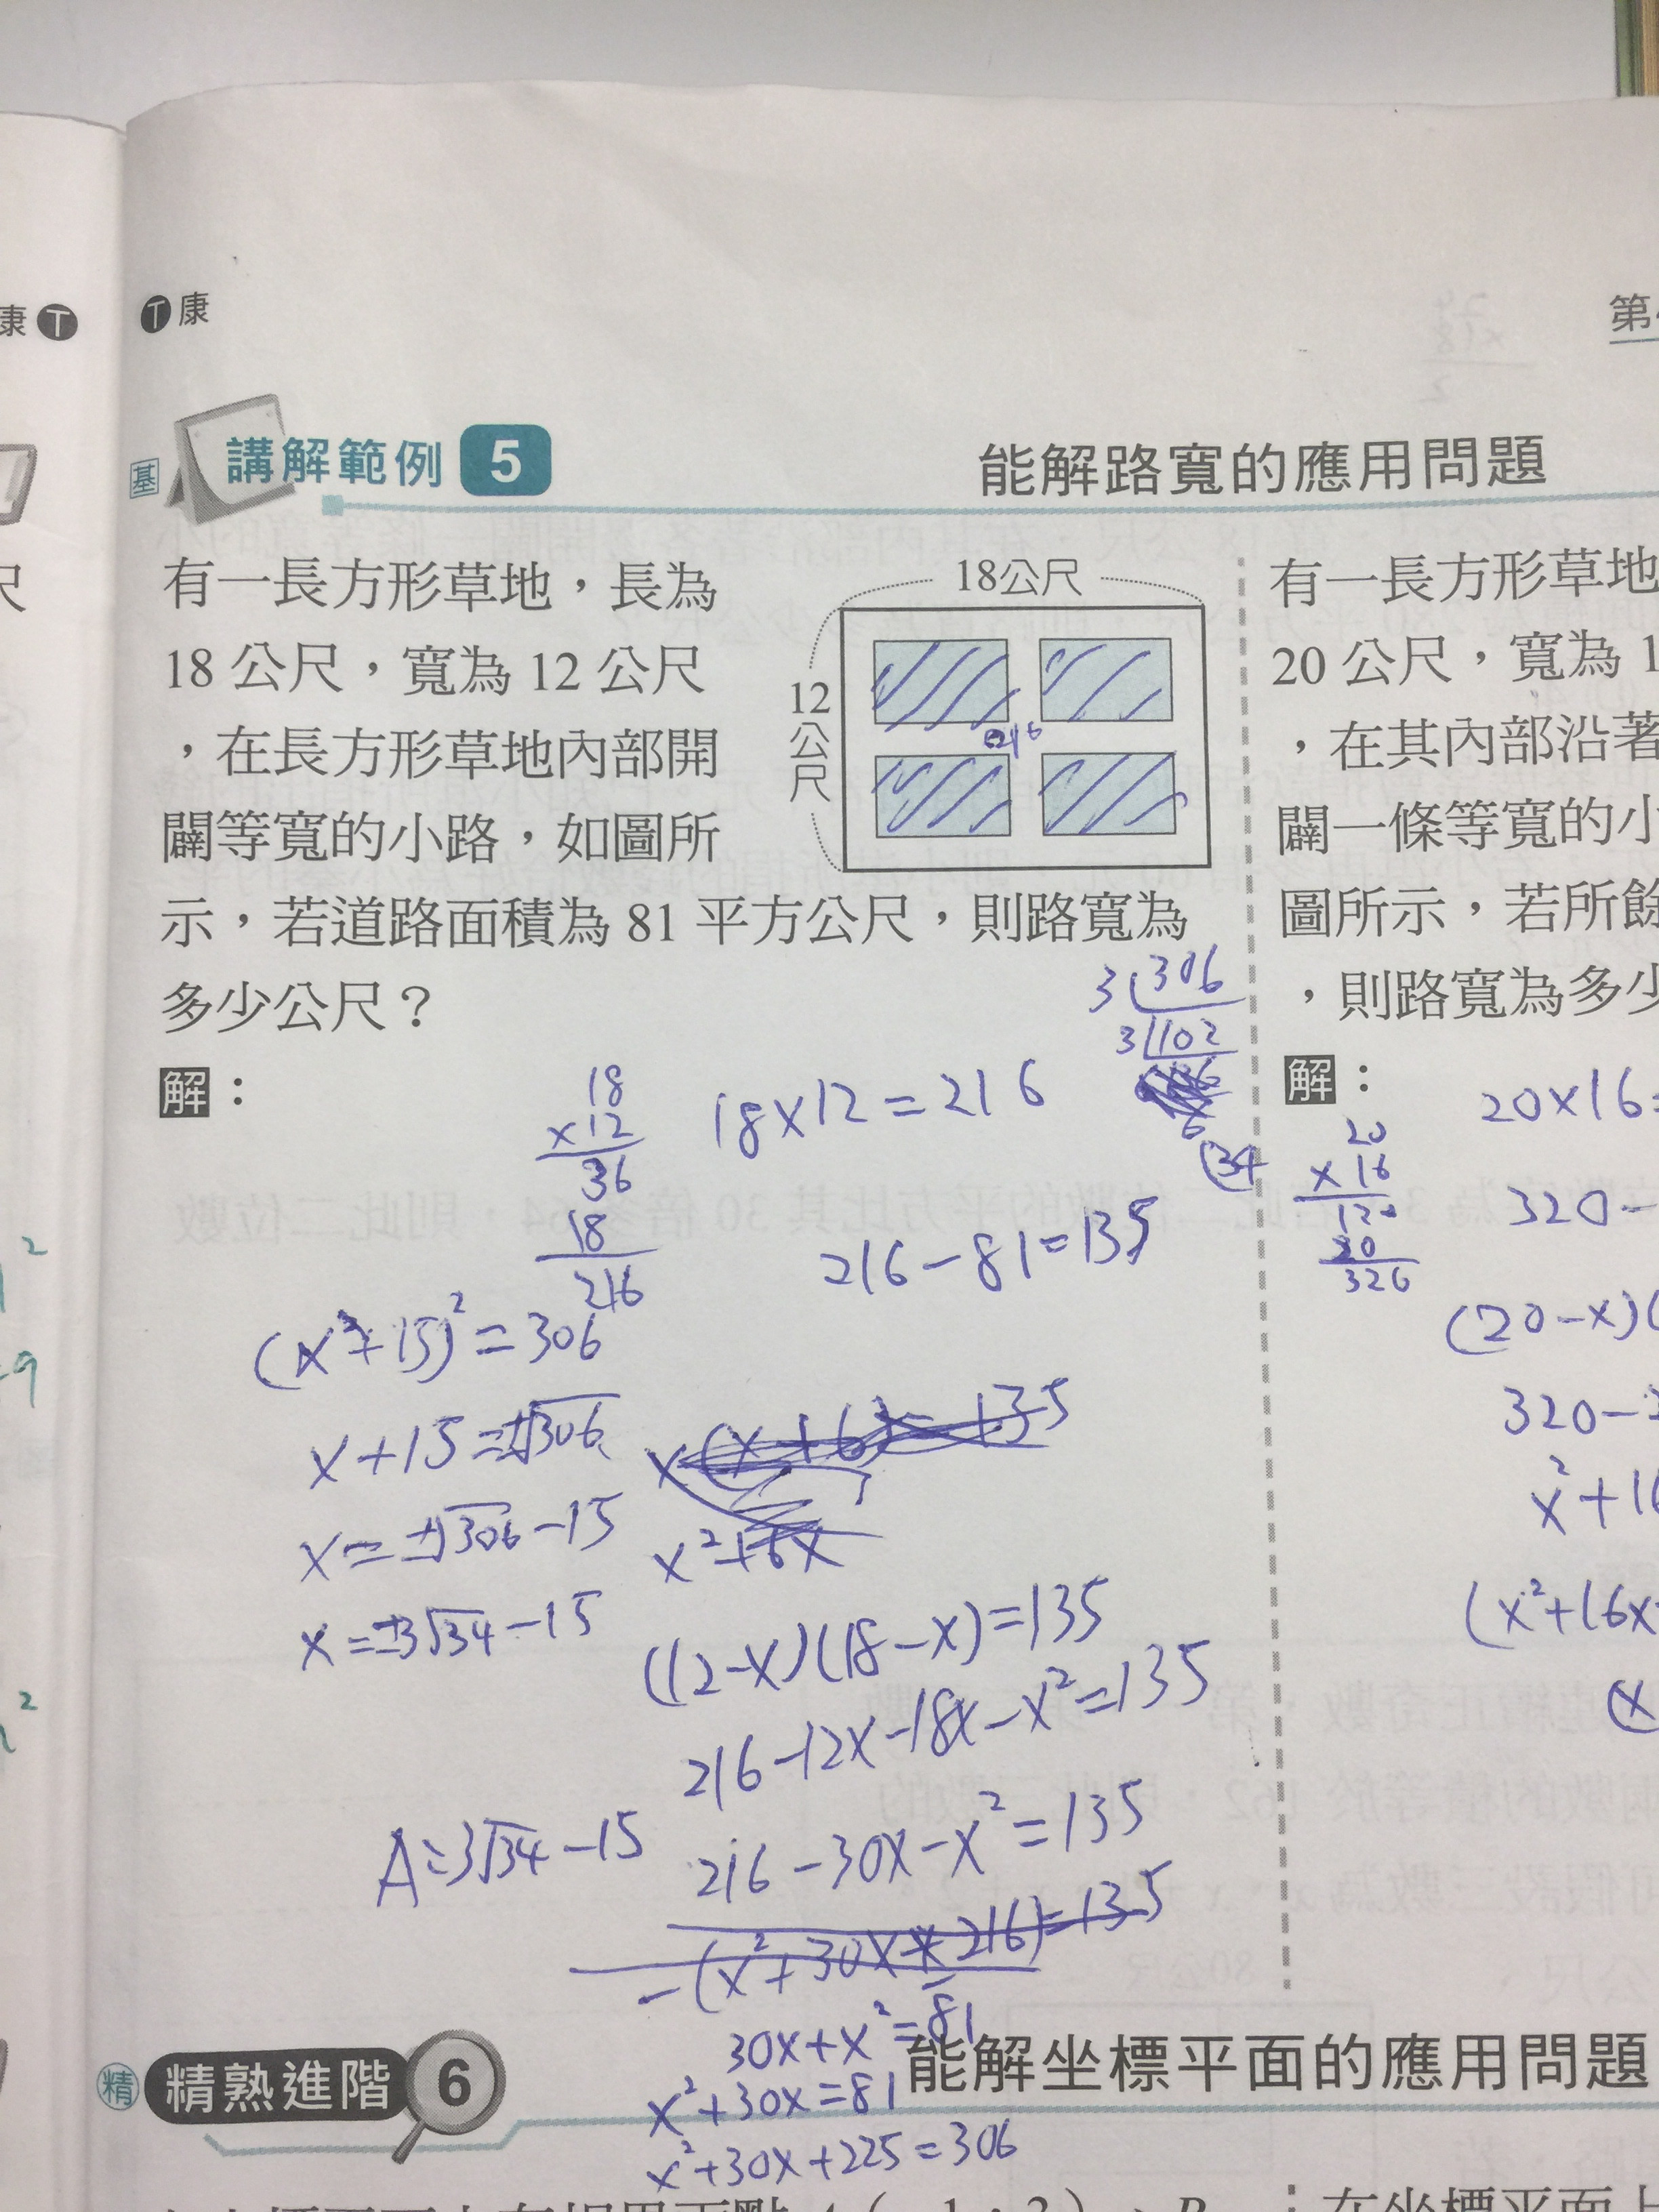 康 T
T 康
第
基 講解範例 5
能解路寬的應用問題
有一長方形草地，長為
18 公尺，寬為 12 公尺
，在長方形草地內部開
闢等寬的小路，如圖所
示，若道路面積為 81 平方公尺，則路寬為
多少公尺？
18公尺
12公尺
解：
18
×12
36
18
216
18×12=216
216-81=135
3 306
3 102
34
(x²+15)²=306
x+15=±√306
x=±√306-15
x=±3√34-15
A:3√34-15
x(x+6)=135
x²+6x
(12-x)(18-x)=135
216-12x-18x-x²=135
216-30x-x²=135
-(x²+30x+216)=135
30x+x²=81
x²+30x=81
x²+30x+225=306
有一長方形草地
20 公尺，寬為 1
，在其內部沿著
闢一條等寬的小
圖所示，若所餘
，則路寬為多少
解：
20×16=
20
×16
120
20
320
320-
(20-x)(
320-3
x²+16
(x²+16x
(x
精 精熟進階 6
能解坐標平面的應用問題
在坐標平面上